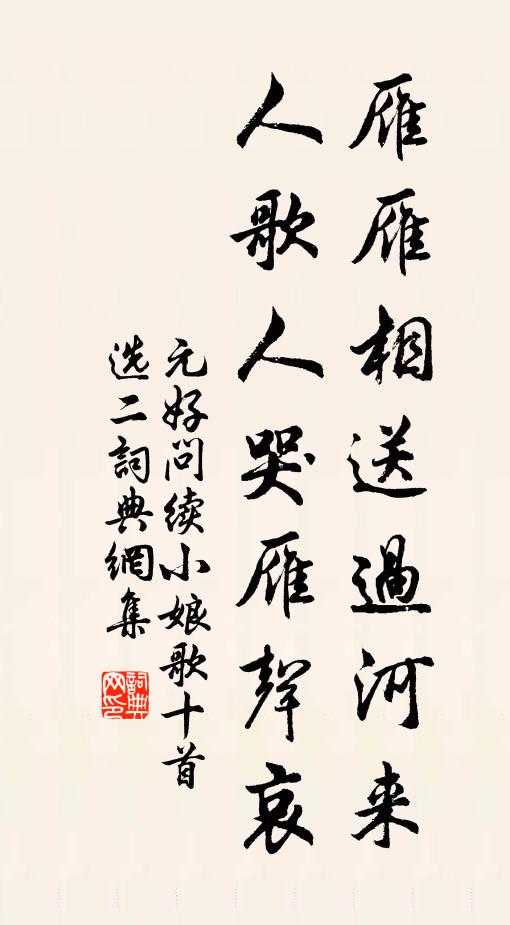 雁雁相送過河来
人歌人哭雁聲哀
元好问续小娘歌十首
选二詞典網集
詞典
网印